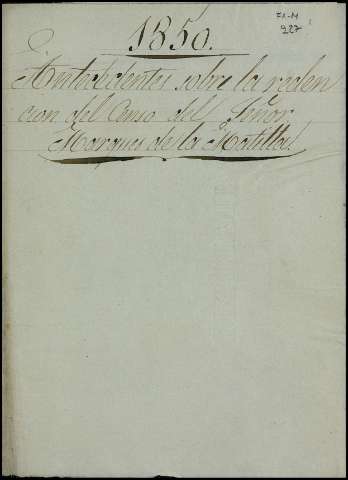 FA-M
927
1850.
Antecedentes sobre la reden
cion del Censo del Señor
Marques de la Matilla.